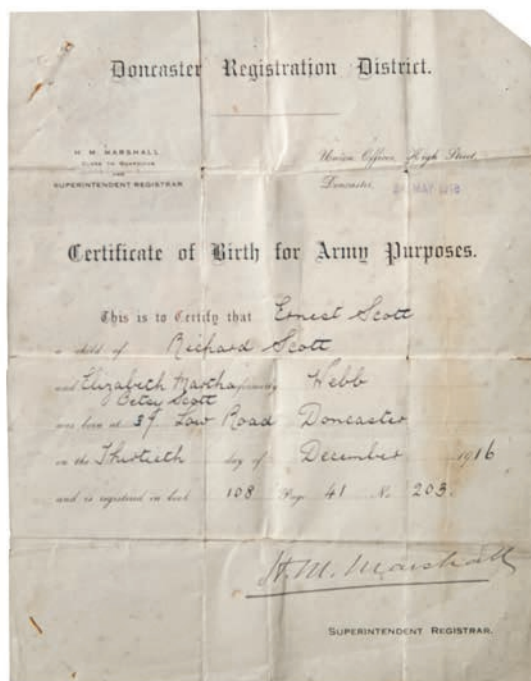 Doncaster Registration District.
H. M. MARSHALL
CLERK TO GUARDIANS
AND
SUPERINTENDENT REGISTRAR
Union Offices, High Street,
Doncaster, MAY
Certificate of Birth for Army Purposes.
This is to Certify that Ernest Scott
a child of Richard Scott
and Elizabeth Martha formerly Webb
Betsy Scott
was born at Low Road Doncaster
on the Thirtieth day of December 1916
and is registered in book 108 Page 41 No. 203.
H. M. Marshall
SUPERINTENDENT REGISTRAR.